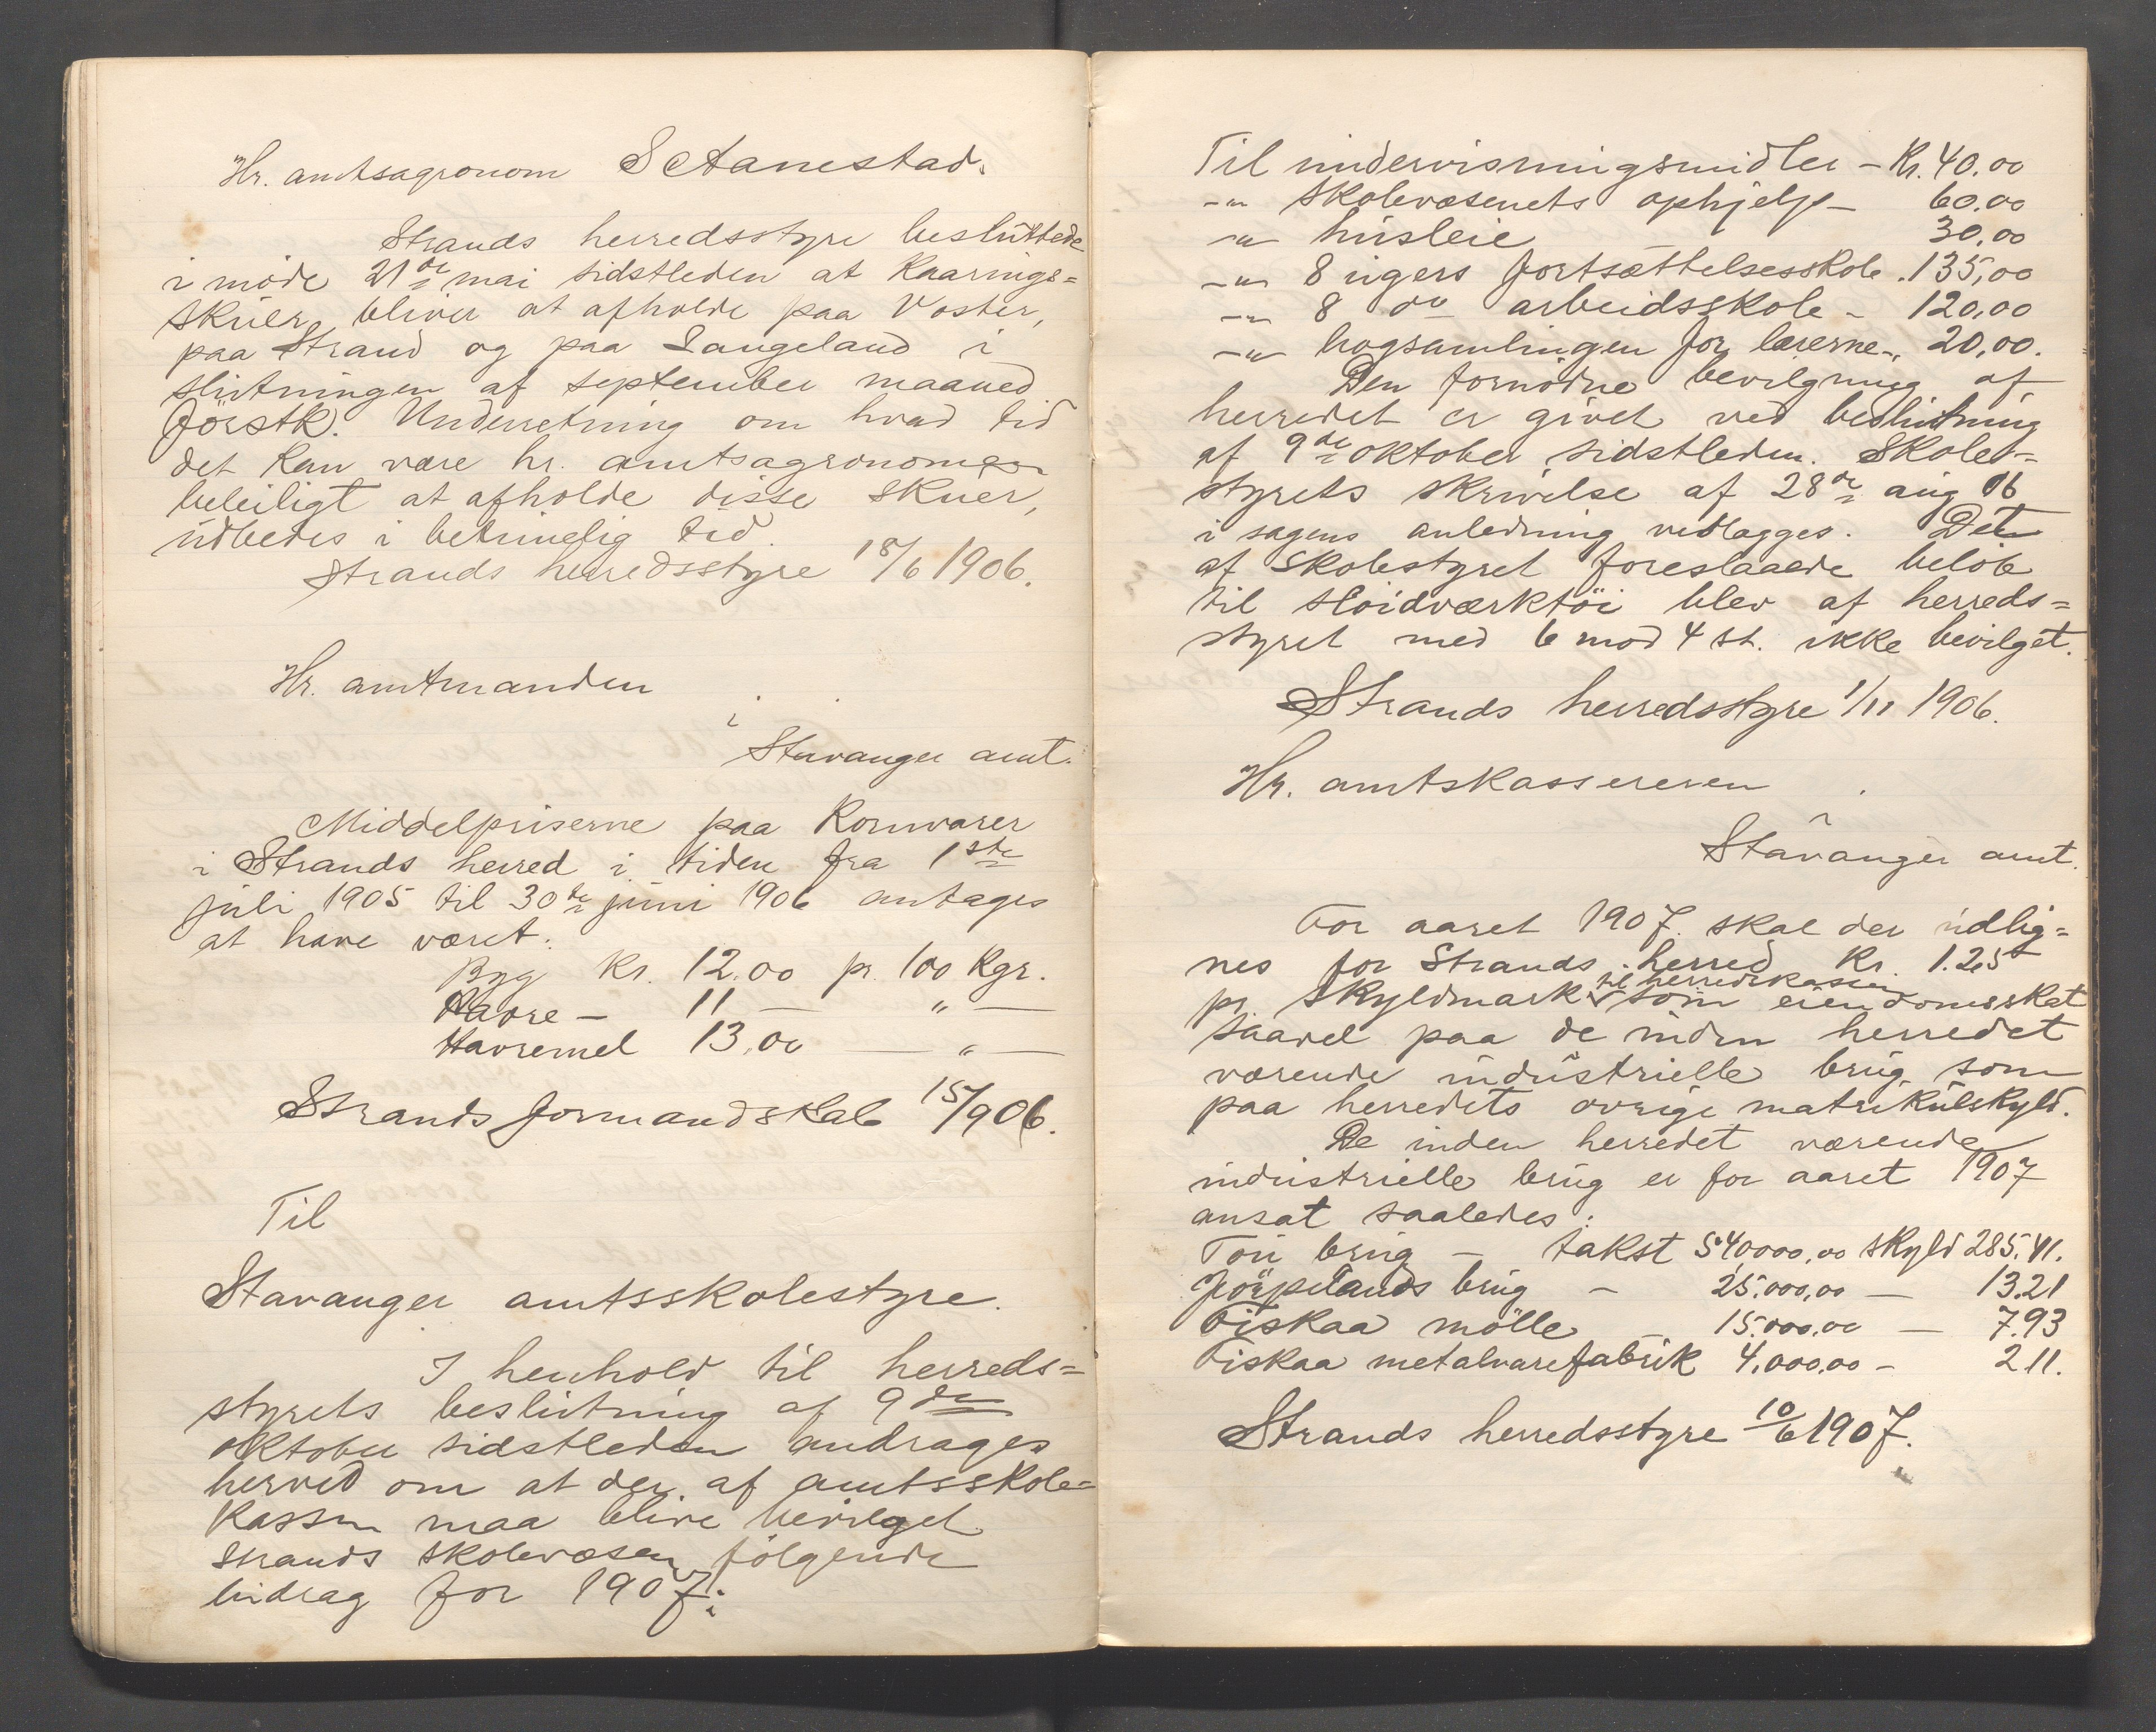 Hr. amtsagronom Scanestad.
Strands herredsstyre besluttede
i møde 21de mai sidstleden at Kaarings=
skuer bliver at afholde paa Voster,
paa Strand og paa Langeland i
slutningen af september maaned
førstk. Underretning om hvad tid
det kan være hr. amtsagronomen
beleiligt at afholde disse skuer,
udbedes i betimelig tid.
Strands herredsstyre 18/6 1906.
Hr. amtmanden
i
Stavanger amt.
Middelpriserne paa Kornvarer
i Strands herred i tiden fra 1ste
juli 1905 til 30te juni 1906 antages
at have været:
Byg Kr. 12.00 pr. 100 Kgr.
Havre - 11 — " —
Havremel 13,00 — " —
Strands formandskab 15/9 06.
Til
Stavanger amtsskolestyre.
I henhold til herreds=
styrets beslutning af 9de
oktober sidstleden andrages
herved om at der af amtsskole=
kassen maa blive bevilget
Strands skolevæsen følgende
bidrag for 1907:
Til undervisningsmidler - Kr. 40.00
-"- skolevæsenets ophjelp - 60.00
-"- husleie 30,00
-"- 8 ugers fortsættelsesskole . 135,00
-"- 8 do arbeidsskole - 120,00
-"- bogsamlingen for lærerne -„ 20,00.
Den fornødne bevilgning af
herredet er givet ved beslutning
af 9de oktober sidstleden. Skole=
styrets skrivelse af 28de aug 06
i sagens anledning vedlægges. Det
af skolestyret foreslaaede beløb
til sløidværktøi blev af herreds=
styret med 6 mod 4 st. ikke bevilget.
Strands herredsstyre 1/11 1906.
Hr. amtskassereren
i
Stavanger amt.
For aaret 1907 skal der udlig=
nes for Strands herred Kr. 1.25
til herredskassen
pr. skyldmark som eiendomsskat
saavel paa de inden herredet
værende industrielle brug som
paa herredets øvrige matrikulskyld.
De inden herredet værende
industrielle brug er for aaret 1907
ansat saaledes:
Tou brug - takst 540000,00 skyld 285.41.
Jørpelands brug - 25.000,00 — 13.21
Fiskaa mølle 15.000.00 — 7.93
Fiskaa metalvarefabrik 4.000,00 - 2 11.
Strands herredsstyre 10/6 1907.